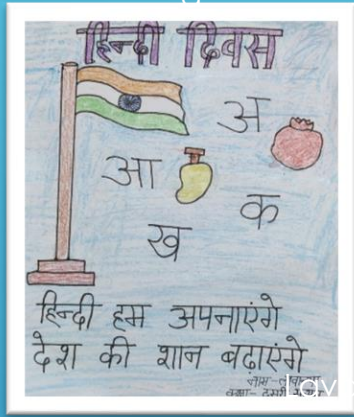 हिन्दी दिवस
अ
आ
क
ख
हिन्दी हम अपनाएंगे
देश की शान बढ़ाएंगे
नाम-
कक्षा-
Lav